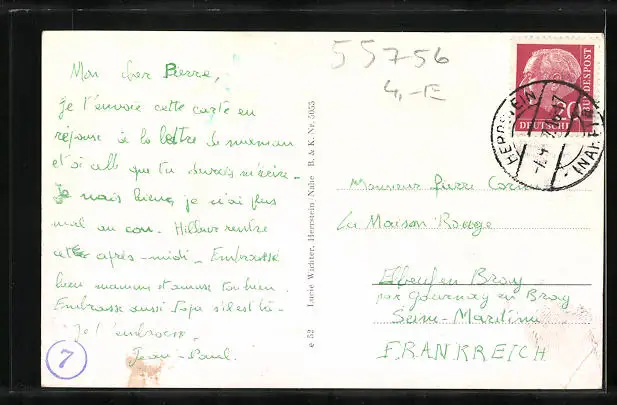 55756
4,-E
Mon cher Pierre,
Je t'envoie cette carte en
réponse à la lettre de maman
et à celle que tu
Je vais bien, je n'ai plus
mal au cou. Hilmar rentre
cet après-midi. Embrasse
bien maman et amuse toi bien.
Embrasse aussi Papa s'il est là.
Je t'embrasse.
Jean-Paul.
7
e 52 Lucie Wichter, Herrstein/Nahe B. & K. Nr. 5055
DEUTSCHE BUNDESPOST
20
HERRSTEIN
(NAHE)
Monsieur Pierre
La Maison Rouge
Elbeuf en Bray
par Gournay en Bray
Seine-Maritime
FRANKREICH